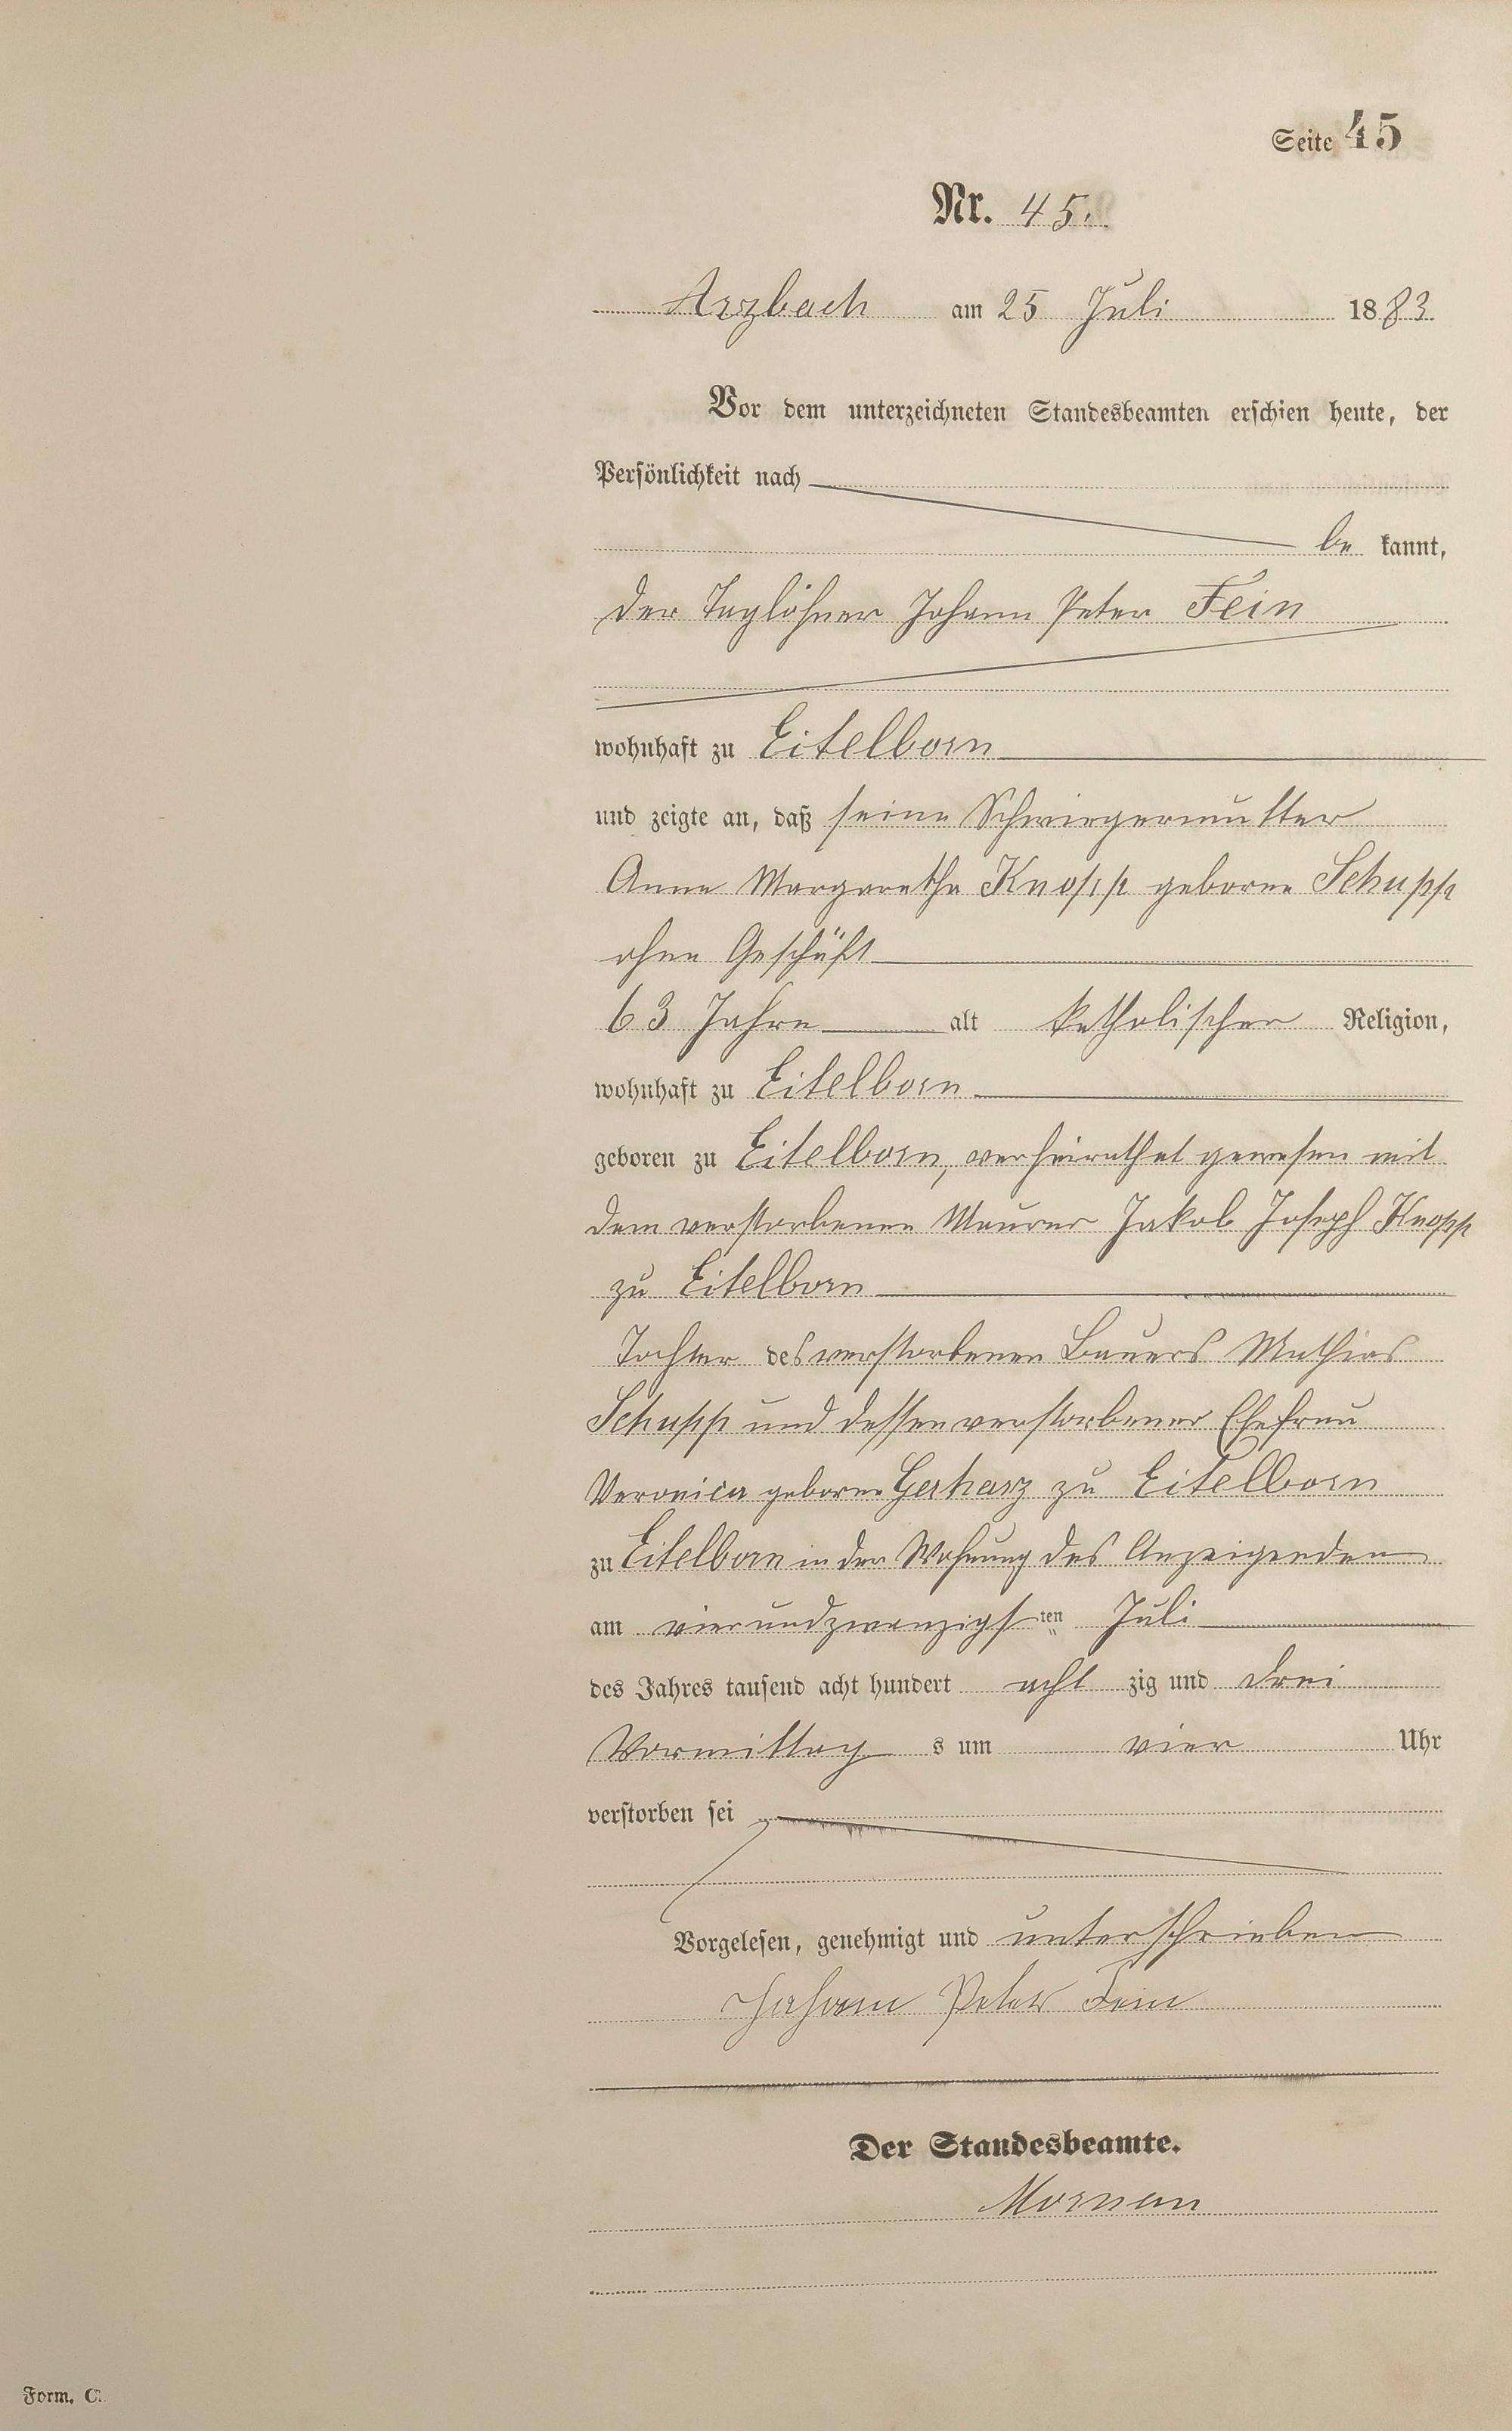 Seite 45
Nr. 45.
Arzbach am 25 Juli 1883
Vor dem unterzeichneten Standesbeamten erschien heute, der
Persönlichkeit nach
be kannt,
der Taglöhner Johann Peter Fein
wohnhaft zu Eitelborn
und zeigte an, daß seine Schwiegermutter
Anna Margaretha Knopp geborne Schupp
ohne Geschäft
63 Jahre alt katholischer Religion,
wohnhaft zu Eitelborn
geboren zu Eitelborn, verheirathet gewesen mit
dem verstorbenen Maurer Jakob Joseph Knopp
zu Eitelborn
Tochter des verstorbenen Bauers Mathias
Schupp und dessen verstorbener Ehefrau
Veronica geborne Gerharz zu Eitelborn
zu Eitelborn in der Wohnung des Anzeigenden
am vierundzwanzigsten Juli
des Jahres tausend acht hundert acht zig und drei
Vormittag s um vier Uhr
verstorben sei
Vorgelesen, genehmigt und unterschrieben
Johann Peter Fein
Der Standesbeamte.
Form. C.